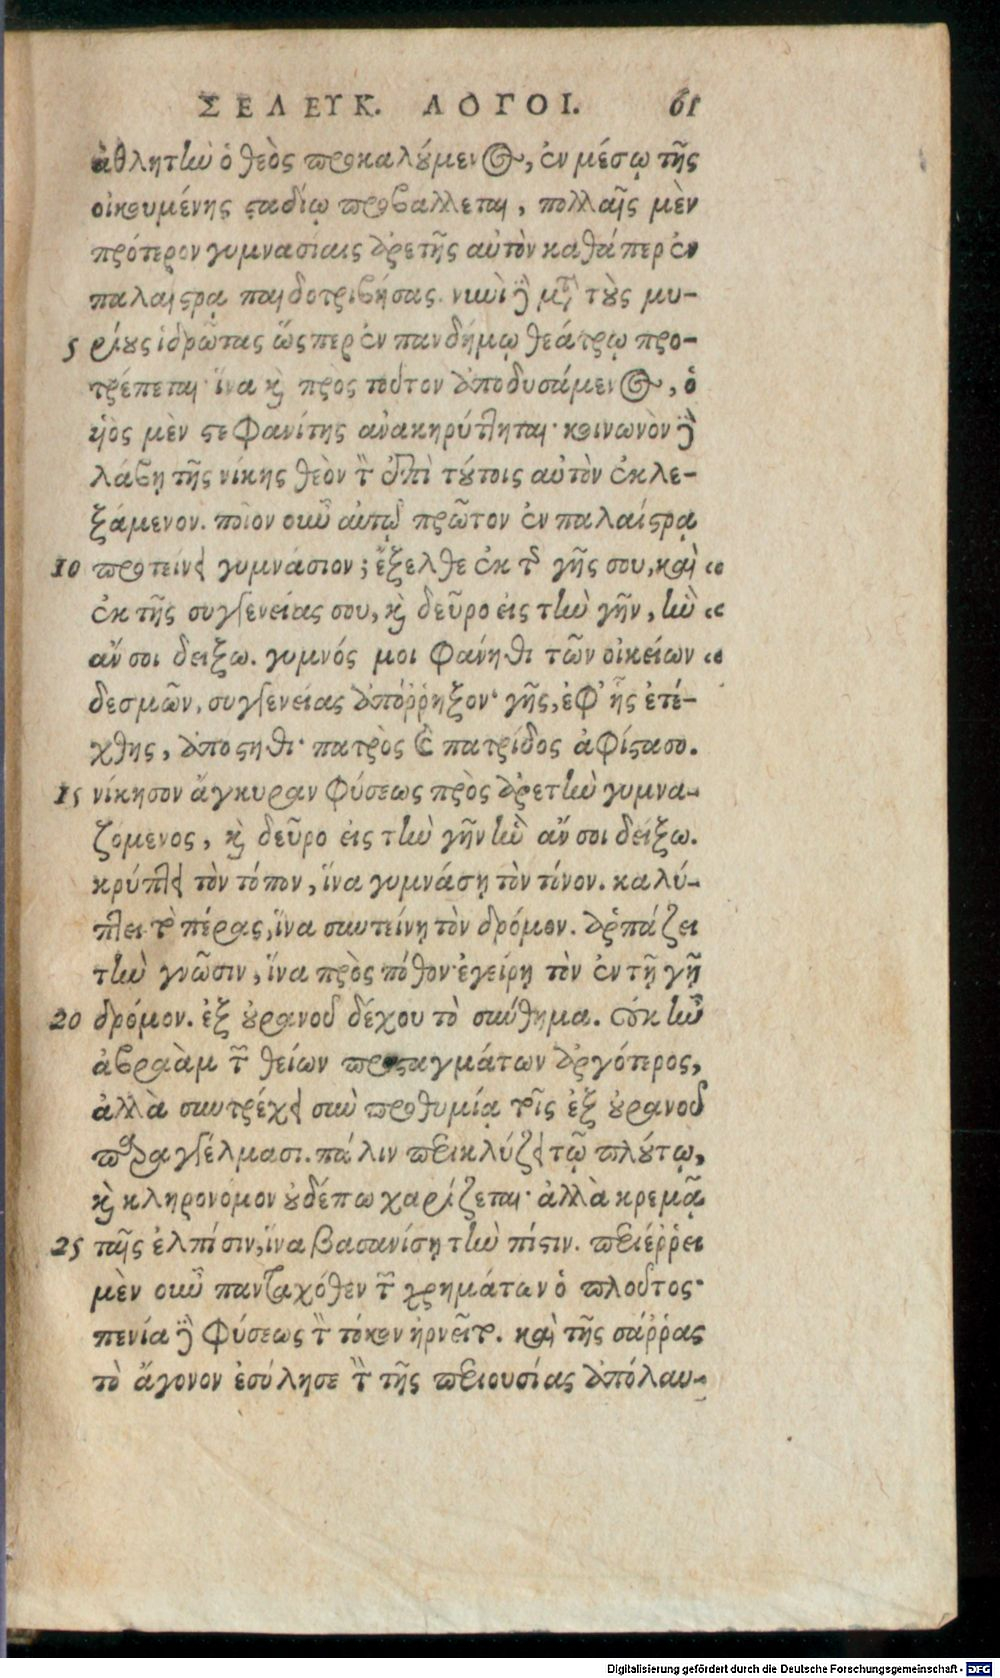 ΣΕΛΕΥΚ. ΛΟΓΟΙ. 61
ἀθλητὴν ὁ θεὸς προκαλούμενος, ἐν μέσῳ τῆς
οἰκουμένης σταδίῳ προβάλλεται, πολλαῖς μὲν
πρότερον γυμνασίαις ἀρετῆς αὐτὸν καθάπερ ἐν
παλαίστρᾳ παιδοτριβήσας. νυνὶ δὲ μετὰ τοὺς μυ-
5 ρίους ἱδρῶτας ὥσπερ ἐν πανδήμῳ θεάτρῳ προ-
τρέπεται· ἵνα καὶ πρὸς τοῦτον ἀποδυσάμενος, ὁ
υἱὸς μὲν στεφανίτης ἀνακηρύττηται· κοινωνὸν δὲ
λάβῃ τῆς νίκης θεὸν τὸν ἐπὶ τούτοις αὐτὸν ἐκλε-
ξάμενον. ποῖον οὖν αὐτῷ πρῶτον ἐν παλαίστρᾳ
10 προτείνει γυμνάσιον; ἔξελθε ἐκ τῆς γῆς σου, καὶ “
ἐκ τῆς συγγενείας σου, καὶ δεῦρο εἰς τὴν γῆν, ἣν “
ἄν σοι δείξω. γυμνός μοι φάνηθι τῶν οἰκείων “
δεσμῶν, συγγενείας ἀπόῤῥηξον· γῆς, ἐφ' ἧς ἐτέ-
χθης, ἀπόστηθι· πατρὸς καὶ πατρίδος ἀφίστασο.
15 νίκησον ἄγκυραν φύσεως πρὸς ἀρετὴν γυμνα-
ζόμενος, καὶ δεῦρο εἰς τὴν γῆν ἣν ἄν σοι δείξω.
κρύπτει τὸν τόπον, ἵνα γυμνάσῃ τὸν τόνον. καλύ-
πτει τὸ πέρας, ἵνα συντείνῃ τὸν δρόμον. ἁρπάζει
τὴν γνῶσιν, ἵνα πρὸς πόθον ἐγείρῃ τὸν ἐν τῇ γῇ
20 δρόμον. ἐξ οὐρανοῦ δέχου τὸ σύνθημα. οὐκ ἦν
ἀβραὰμ τῶν θείων προσταγμάτων ἀργότερος,
ἀλλὰ συντρέχει σὺν προθυμίᾳ τοῖς ἐξ οὐρανοῦ
παραγγέλμασι. πάλιν περικλύζει τῷ πλούτῳ,
καὶ κληρονόμον οὐδέπω χαρίζεται· ἀλλὰ κρεμᾷ
25 ταῖς ἐλπίσιν, ἵνα βασανίσῃ τὴν πίστιν. περιέῤῥει
μὲν οὖν πανταχόθεν τῶν χρημάτων ὁ πλοῦτος·
πενία δὲ φύσεως τὸν τόκον ἠρνεῖτο. καὶ τῆς σάῤῥας
τὸ ἄγονον ἐσύλησε τὴν τῆς περιουσίας ἀπόλαυ-
Digitalisierung gefördert durch die Deutsche Forschungsgemeinschaft - DFG